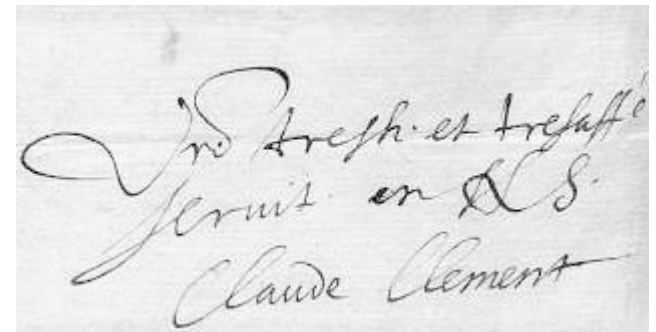 Vre tresh. et tresaff^é
servit. en N S.
Claude Clement